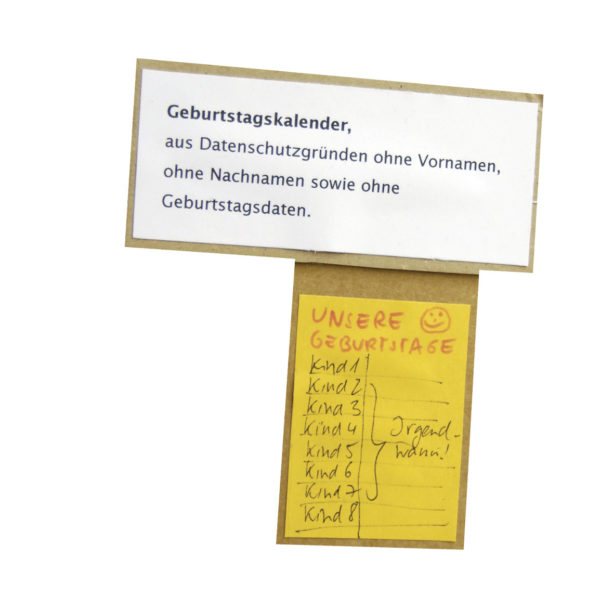 Geburtstagskalender,
aus Datenschutzgründen ohne Vornamen,
ohne Nachnamen sowie ohne
Geburtstagsdaten.
UNSERE
GEBURTSTAGE
Kind 1
Kind 2
Kind 3
Kind 4 Irgend-
Kind 5 wann!
Kind 6
Kind 7
Kind 8